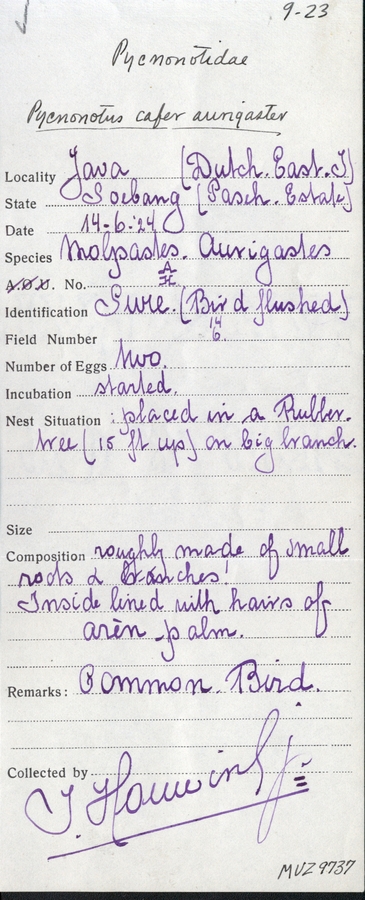 9-23
Pycnonotidae
Pycnonotus cafer aurigaster
Locality Java (Dutch. East. I)
State Soebang (Pasch. Estate)
Date 14-6-'24
Species Molpastes. Aurigastes
A.O.U. No. A/II
Identification Sure. (Bird flushed)
Field Number 14/6.
Number of Eggs two.
Incubation started.
Nest Situation : placed in a Rubber.
tree (15 ft up) on big branch.
Size
Composition roughly made of small
roots & branches!
Inside lined with hairs of
arèn palm.
Remarks: Common. Bird.
Collected by
MVZ 9737